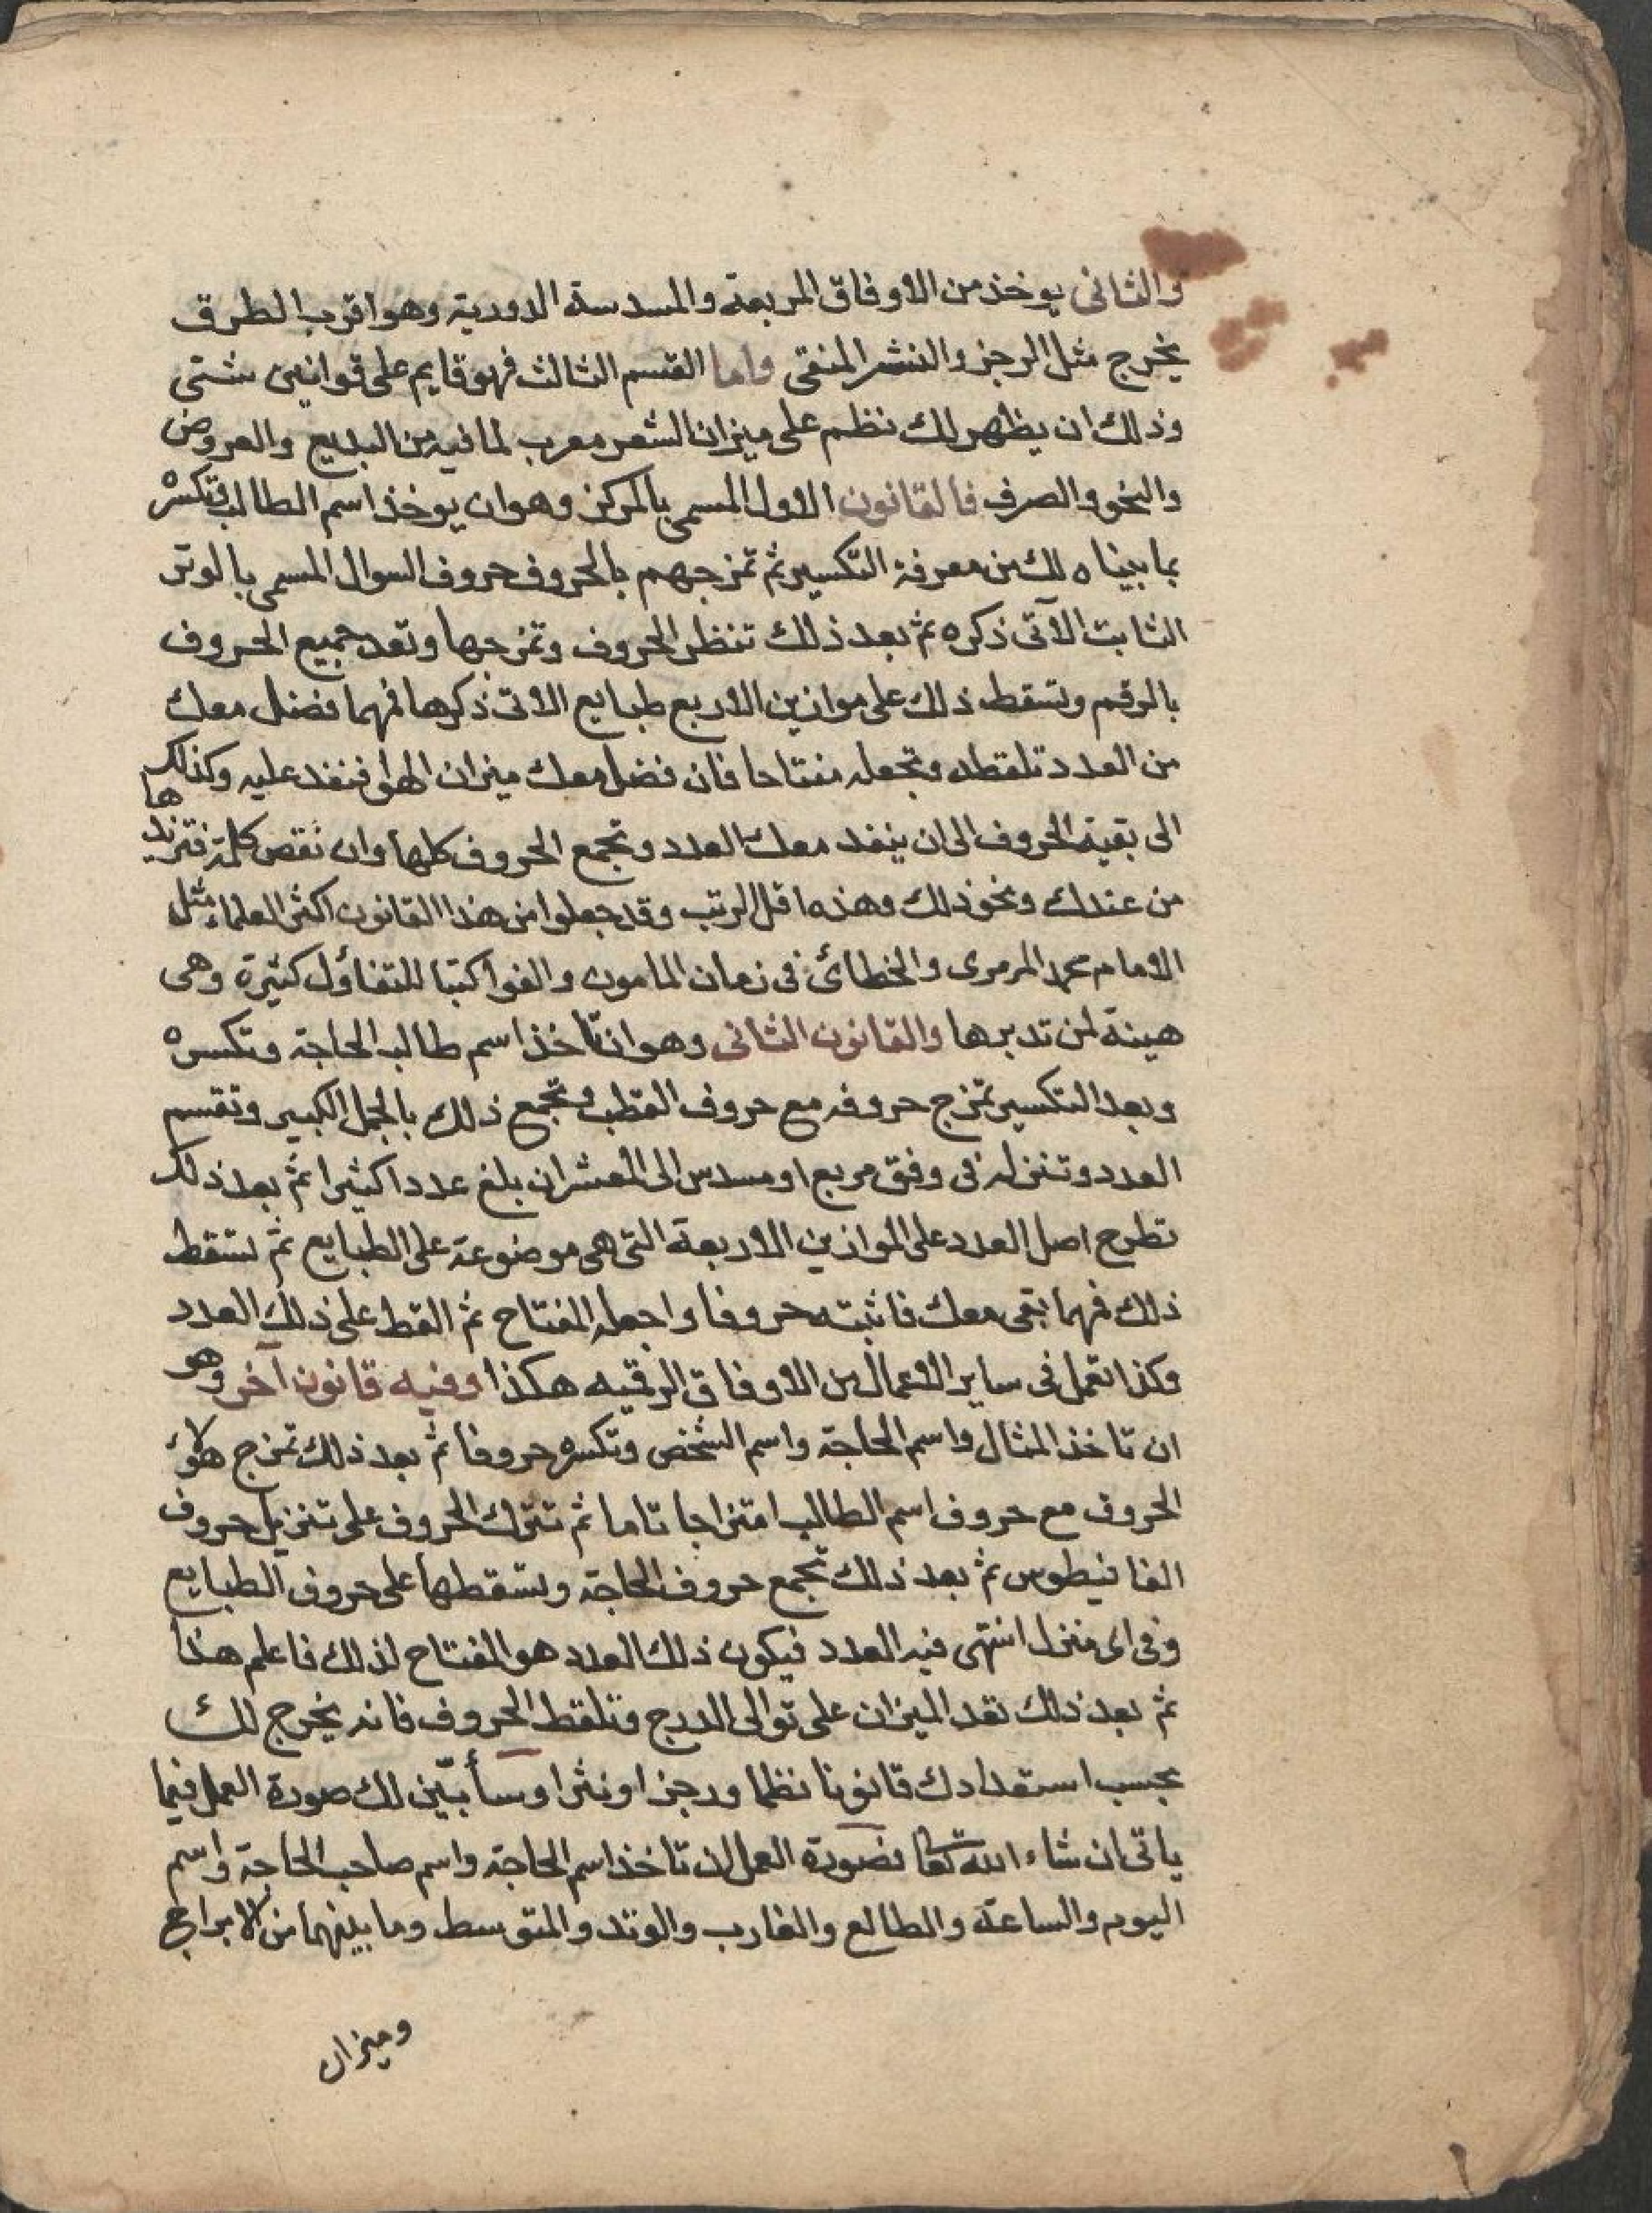 والثانى يوخذ من الاوفاق المربعة والمسدسة الدورية وهو اقرب الطرق
يخرج مثل الرجز والنشر المنقى واما القسم الثالث فهو قايم على قوانين شتى
وذلك ان يظهر لك نظم على ميزان الشعر معرب لما فيه من البديع والعروض
والنحو والصرف فالقانون الاول المسمى بالمركز وهو ان يوخذ اسم الطالب وتكسره
بما بيناه لك من معرفة التكسير ثم تمزجهم بالحروف حروف السوال المسمى بالوتر
الثابت الآتى ذكره ثم بعد ذلك تنظر الحروف وتمزجها وتعد جميع الحروف
بالرقم وتسقط ذلك على موازين الاربع طبايع الاتى ذكرها فمهما فضل معك
من العدد تلقطه وتجعله مفتاحا فان فضل معك ميزان الهوا فنفد عليه وكذلك
الى بقية الحروف الى ان ينفد معك العدد وتجمع الحروف كلها وان نقص كلمة فتزيدها
من عندك ونحو ذلك وهذه اقل الرتب وقد جعلوا من هذا القانون اكثر العلماء مثل
الامام محمد المرمرى والخطائ فى زمان المامون والفوا كتبا للتفاؤل كثيرة وهى
هينة لمن تدبرها والقانون الثانى وهو ان تاخذ اسم طالب الحاجة وتكسره
وبعد التكسير تمزج حروفه مع حروف القطب وتجمع ذلك بالجمل الكبير وتقسم
العدد وتنزله فى وفق مربع او مسدس الى المعشر ان بلغ عددا كثيرا ثم بعد ذلك
تطرح اصل العدد على الموازين الاربعة التى هى موضوعة على الطبايع ثم تسقط
ذلك فمهما بقى معك فاثبته حروفا واجعله المفتاح ثم القط على ذلك العدد
وكذا تعمل فى ساير الاعمال من الاوفاق الرقيه هكذا وفيه قانون آخر وهو
ان تاخذ المثال واسم الحاجة واسم الشخص وتكسره حروفا ثم بعد ذلك تمزج هؤلاء
الحروف مع حروف اسم الطالب امتزاجا تاما ثم تترك الحروف على تنزيل حروف
الفافيطوس ثم بعد ذلك تجمع حروف الحاجة وتسقطها على حروف الطبايع
وفى اى منزل انتهى فيه العدد فيكون ذلك العدد هو المفتاح لذلك فاعلم هذا
ثم بعد ذلك تعد الميزان على توالى الدرج وتلقط الحروف فانه يخرج لك
بحسب استعدادك قانونا نظما ورجزا ونثرا وسأبيّن لك صورة العمل فيما
ياتى ان شاء الله تعا فصورة العمل ان تاخذ اسم الحاجة واسم صاحب الحاجة واسم
اليوم والساعة والطالع والغارب والوتد والمتوسط وما بينهما من الابراج
وميزان